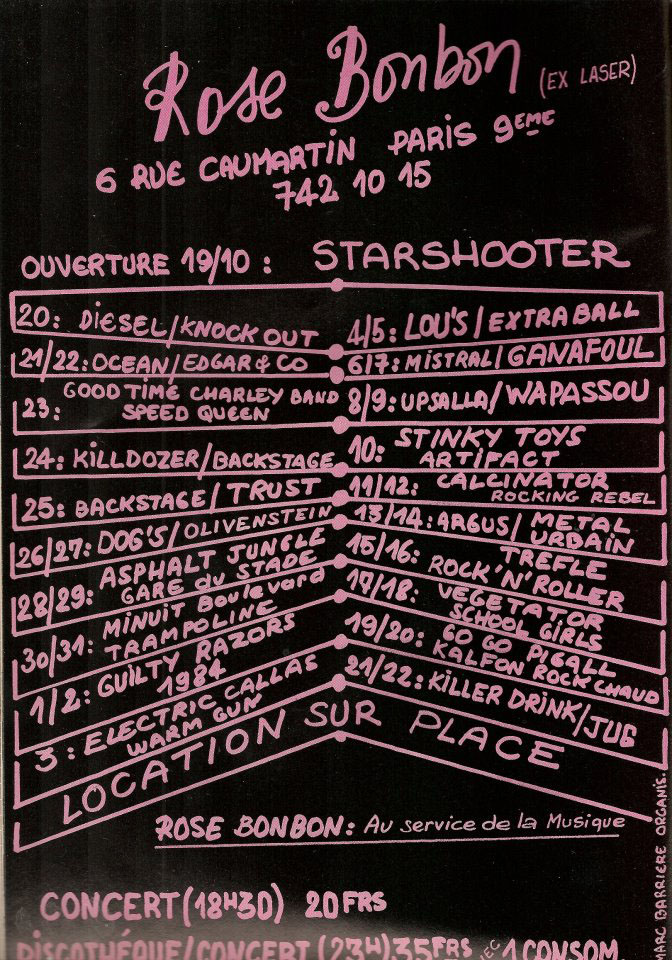 Rose Bonbon (EX LASER)
6 RUE CAUMARTIN PARIS 9EME
742 10 15
OUVERTURE 19/10 : STARSHOOTER
20: DIESEL/KNOCK OUT
21/22: OCEAN/EDGAR & CO
23: GOOD TIME CHARLEY BAND
SPEED QUEEN
24: KILLDOZER/BACKSTAGE
25: BACKSTAGE/TRUST
26/27: DOG'S/OLIVENSTEIN
28/29: ASPHALT JUNGLE
GARE du STADE
30/31: MINUIT Boulevard
TRAMPOLINE
1/2: GUILTY RAZORS
1984
3: ELECTRIC CALLAS
WARM GUN
4/5: LOU'S/EXTRABALL
6/7: MISTRAL/GANAFOUL
8/9: UPSALLA/WAPASSOU
10: STINKY TOYS
ARTIFACT
11/12: CALCINATOR
ROCKING REBEL
13/14: ARGUS/METAL
URBAIN
15/16: TREFLE
ROCK'N'ROLLER
17/18: VEGETATOR
SCHOOL GIRLS
19/20: GO GO PIGALL
KALFON ROCK CHAUD
21/22: KILLER DRINK/JUG
LOCATION SUR PLACE
ROSE BONBON: Au service de la Musique
CONCERT (18H30) 20 FRS
DISCOTHÉQUE/CONCERT (23H) 35 FRS AVEC 1 CONSOM.
MARC BARRIERE ORGANIS.